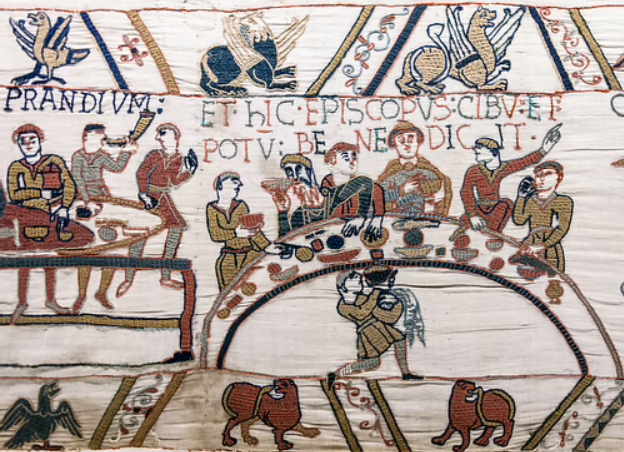 PRANDIVM:
ET·hIC·EPISCOPVS:CIBV:ET
POTV: BE NE DIC IT·